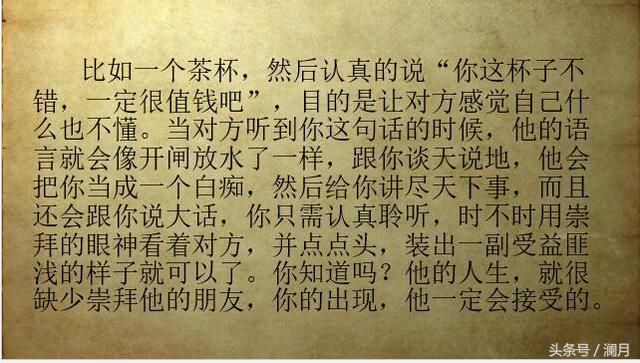 比如一个茶杯，然后认真的说“你这杯子不
错，一定很值钱吧”，目的是让对方感觉自己什
么也不懂。当对方听到你这句话的时候，他的语
言就会像开闸放水了一样，跟你谈天说地，他会
把你当成一个白痴，然后给你讲尽天下事，而且
还会跟你说大话，你只需认真聆听，时不时用崇
拜的眼神看着对方，并点点头，装出一副受益匪
浅的样子就可以了。你知道吗？他的人生，就很
缺少崇拜他的朋友，你的出现，他一定会接受的。
头条号 / 澜月